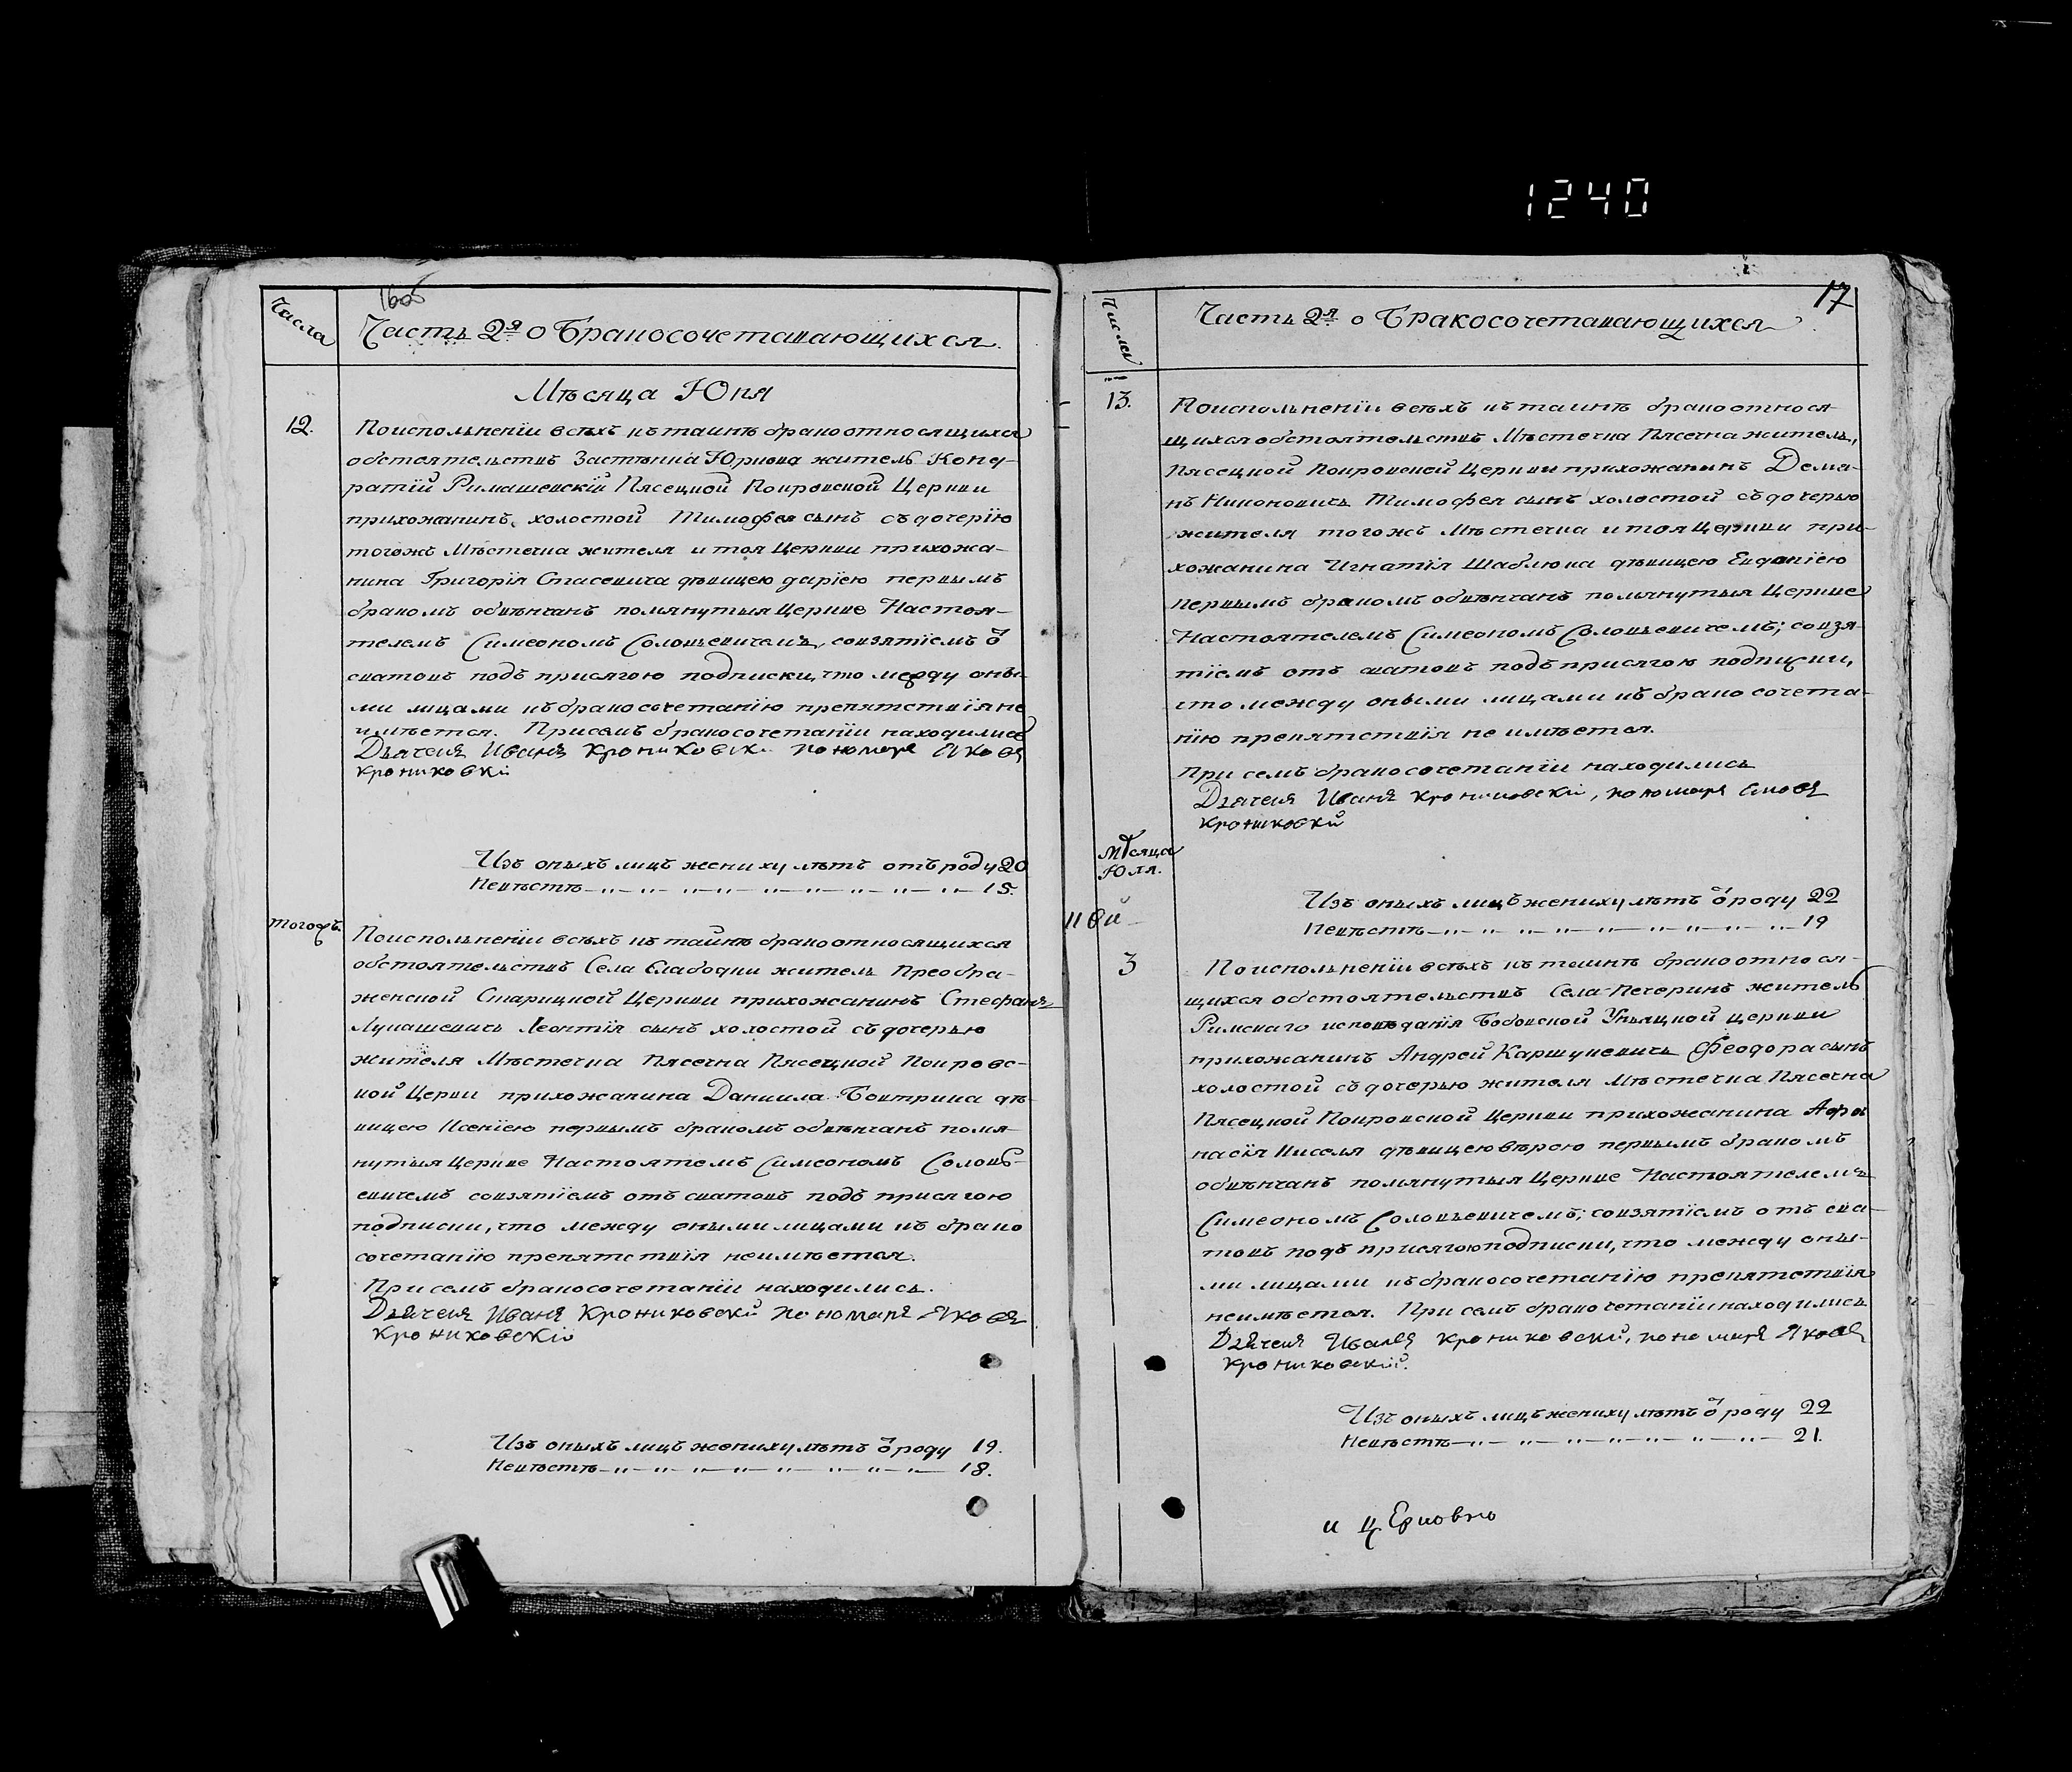 1240
Числа
Часть 2я о Бракосочетавающихся.
Мѣсяца Юня
12.
По исполненіи всѣхъ къ таинѣ брако относящихся
обстоятельствъ Застѣнка Юркова житель Конд-
ратій Римашевскій Пясецкой Покровской Церкви
прихожанинъ, холостой Тимофея сынъ съ дочерію
тогожъ Мѣстечка жителя и тоя Церкви прихожа-
нина Григорія Стасевича дѣвицею даріею первымъ
бракомъ обвѣнчанъ помянутыя Церкве Настоя-
телемъ Симеономъ Соловьевичемъ, совзятіемъ ѿ
сватовъ подъ присягою подписки, что между оны-
ми лицами къ бракосочетанію препятствія не
имѣется. При семъ бракосочетаніи находились
Дьячекъ Иванъ Крониковски пономаръ Яковъ
Крониковскі
Изъ оныхъ лицъ жениху лѣтъ отъ роду 20
Невѣстѣ 15.
тогожъ.
По исполненіи всѣхъ къ тайнѣ брако относящихся
обстоятельствъ Села Слабодки житель Преобра-
женской Старицкой Церкви прихожанинъ Стефанъ
Лукашевичь Леонтія сынъ холостой съ дочерью
жителя Мѣстечка Пясечна Пясецкой Покровс-
кой Церкви прихожанина Даниила Бовтрика дѣ-
вицею Ксеніею первымъ бракомъ обвѣнчанъ помя-
нутыя Церкве Настоятемъ Симеономъ Соловь-
евичемъ совзятіемъ отъ сватовъ подъ присягою
подписки, что между оными лицами къ брако
сочетанію препятствія неимѣется.
При семъ бракосочетаніи находились.
Дьячекъ Иванъ Крониковскій пономаръ Яковъ
Крониковскій
Изъ оныхъ лицъ жениху лѣтъ ѿ роду 19.
Невѣстѣ 18.
17
Числа
Часть 2я о Бракосочетавающихся
13.
По исполненіи всѣхъ къ таинѣ брако относя-
щихся обстоятельствъ Мѣстечка Пясечна житель,
Пясецкой Покровской Церкви прихожанинъ Демя-
нъ Никоновичь Тимофея сынъ холостой съ дочерью
жителя тогожъ Мѣстечка и тоя Церкви при-
хожанина Игнатія Шаблюка дѣвицею Евдокіею
первымъ бракомъ обвѣнчанъ помянутыя Церкве
Настоятелемъ Симеономъ Соловьевичемъ; совзя-
тіемъ отъ сватовъ подъ присягою подписки,
что между оными лицами къ брако сочета-
нію препятствія не имѣется.
При семъ бракосочетаніи находились
Дьячекъ Иванъ Крониковскі, пономаръ Яковъ
Крониковскій
Изъ оныхъ лицъ жениху лѣтъ ѿ роду 22
Невѣстѣ 19
Мѣсяца
Юля.
3
По исполненіи всѣхъ къ таинѣ брако относя-
щихся обстоятельствъ Села Печеринъ житель
Римскаго исповѣданія Бобовской Уніяцкой церкви
прихожанинъ Андрей Каршукевичь Феодора сынъ
холостой съ дочерью жителя Мѣстечка Пясечна
Пясецкой Покровской Церкви прихожанина Афа
насія Киселя дѣвицею вѣрою первымъ бракомъ
обвѣнчанъ помянутыя Церкве Настоятелемъ
Симеономъ Соловьевичемъ; совзятіемъ отъ сва-
товъ подъ присягою подписки, что между оны-
ми лицами къ бракосочетанію препятствія
неимѣется. При семъ брако четаніи находились
Дьячекъ Иванъ Крониковскі, пономаръ Яковъ
Крониковскій.
Изъ оныхъ лицъ жениху лѣтъ ѿ роду 22
Невѣстѣ 21.
и церковно